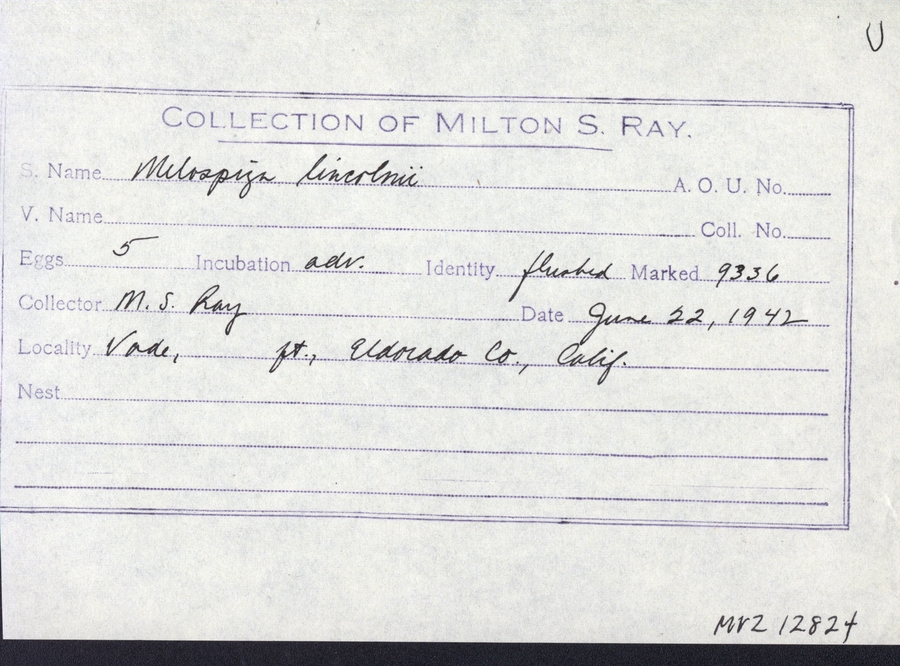 U
COLLECTION OF MILTON S. RAY.
S. Name Melospiza lincolnii A. O. U. No.
V. Name Coll. No.
Eggs 5 Incubation adv. Identity flushed Marked 9336
Collector M. S. Ray Date June 22, 1942
Locality Vade, ft., Eldorado Co., Calif.
Nest
MVZ 12824